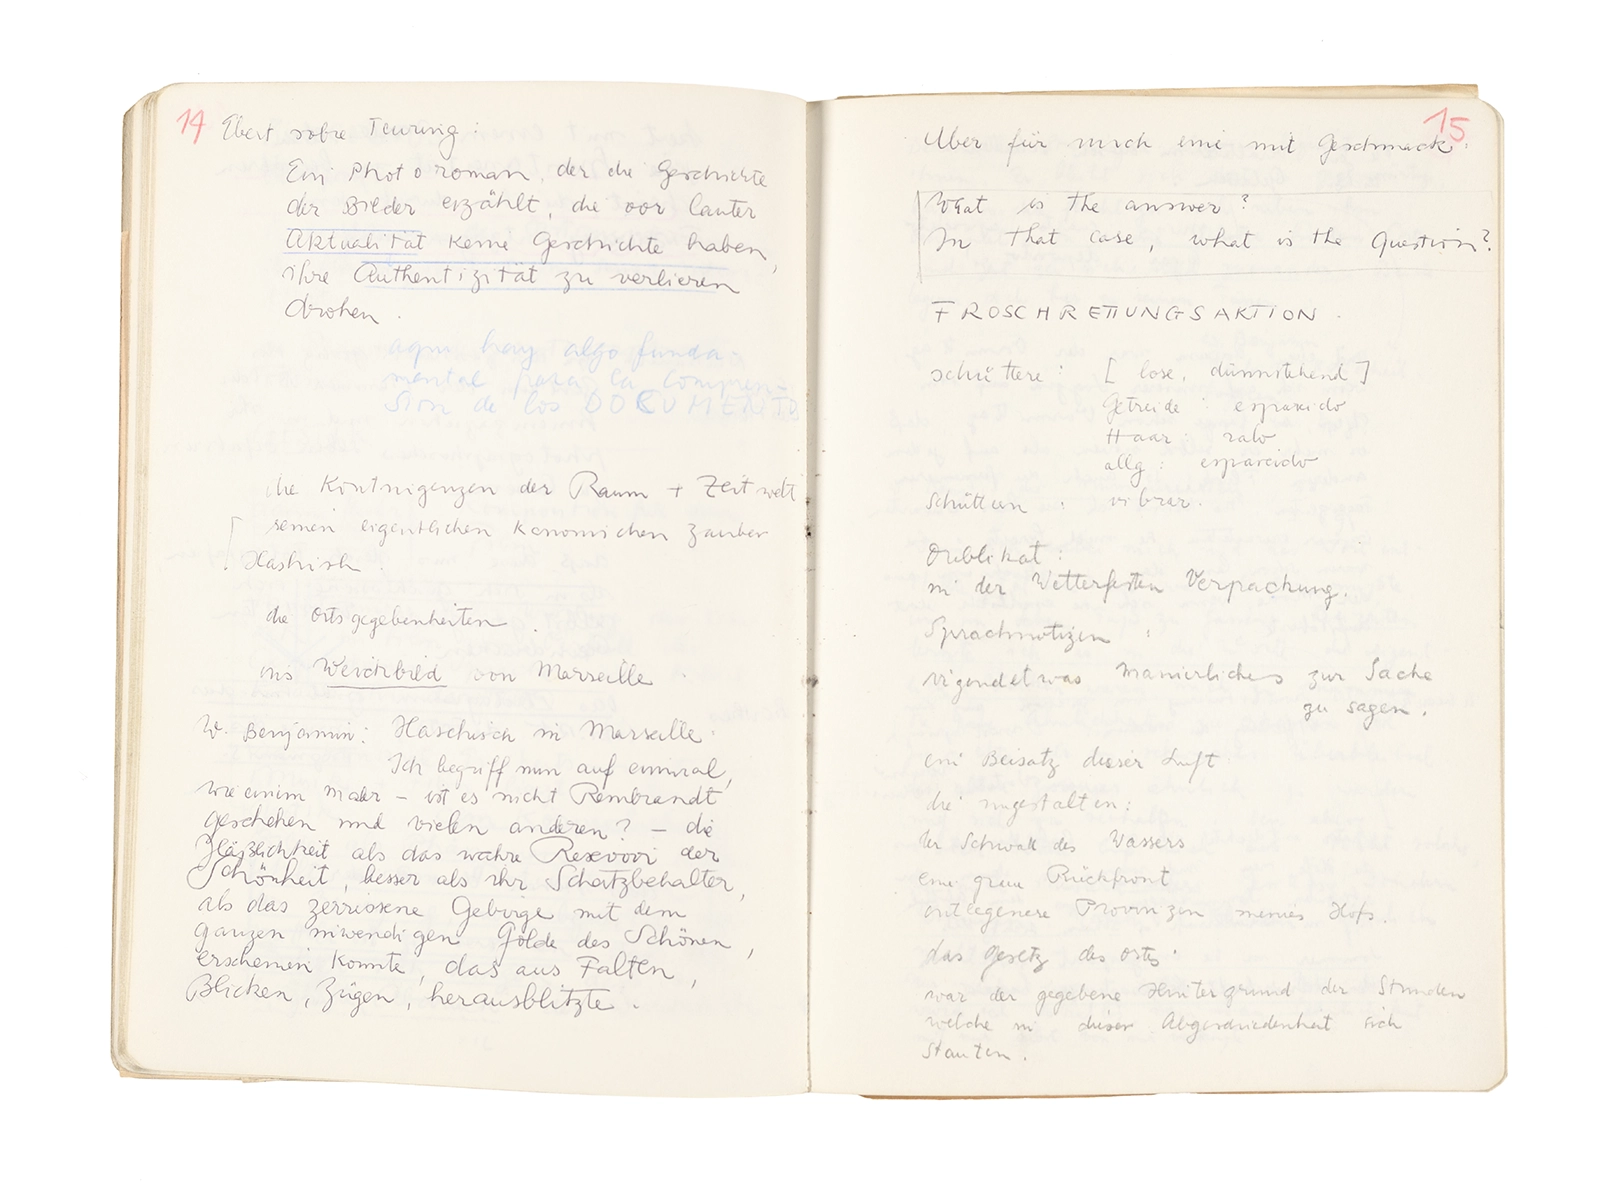 14
Ebert sobre Teuring:
Ein Photoroman, der die Geschichte
der Bilder erzählt, die vor lauter
Aktualität keine Geschichte haben,
ihre Authentizität zu verlieren
drohen.
aqui hay algo funda-
mental para la compren-
sion de los DOCUMENTOS
die Kontingenzen der Raum + Zeitwelt
seinen eigentlichen kanonischen Zauber
Haschisch.
die Ortsgegebenheiten.
ins Weichbild von Marseille.
W. Benjamin: Haschisch in Marseille.
Ich begriff nun auf einmal,
wie einem Maler – ist es nicht Rembrandt
geschehen und vielen anderen? – die
Häßlichkeit als das wahre Reservoir der
Schönheit, besser als ihr Schatzbehalter,
als das zerrissene Gebirge mit dem
ganzen inwendigen Golde des Schönen,
erscheinen konnte, das aus Falten,
Blicken, Zügen, herausblitzte.
15
Aber für mich eine mit Geschmack.
What is the answer?
In that case, what is the Question?
FROSCHRETTUNGSAKTION.
schüttere: [lose, dünnstehend]
Getreide: esparcido
Haar: ralo
allg: esparcido
schüttern: vibrar.
Dublikat:
in der Wetterfesten Verpackung.
Sprachnotizen:
irgendetwas Manierliches zur Sache
zu sagen.
ein Beisatz dieser Luft
die ungestalten:
der Schwall des Wassers
eine graue Rückfront
entlegenere Provinzen meines Hofs.
das Gesetz des Ortes.
war der gegebene Hintergrund der Stunden
welche in dieser Abgeschiedenheit sich
stauten.